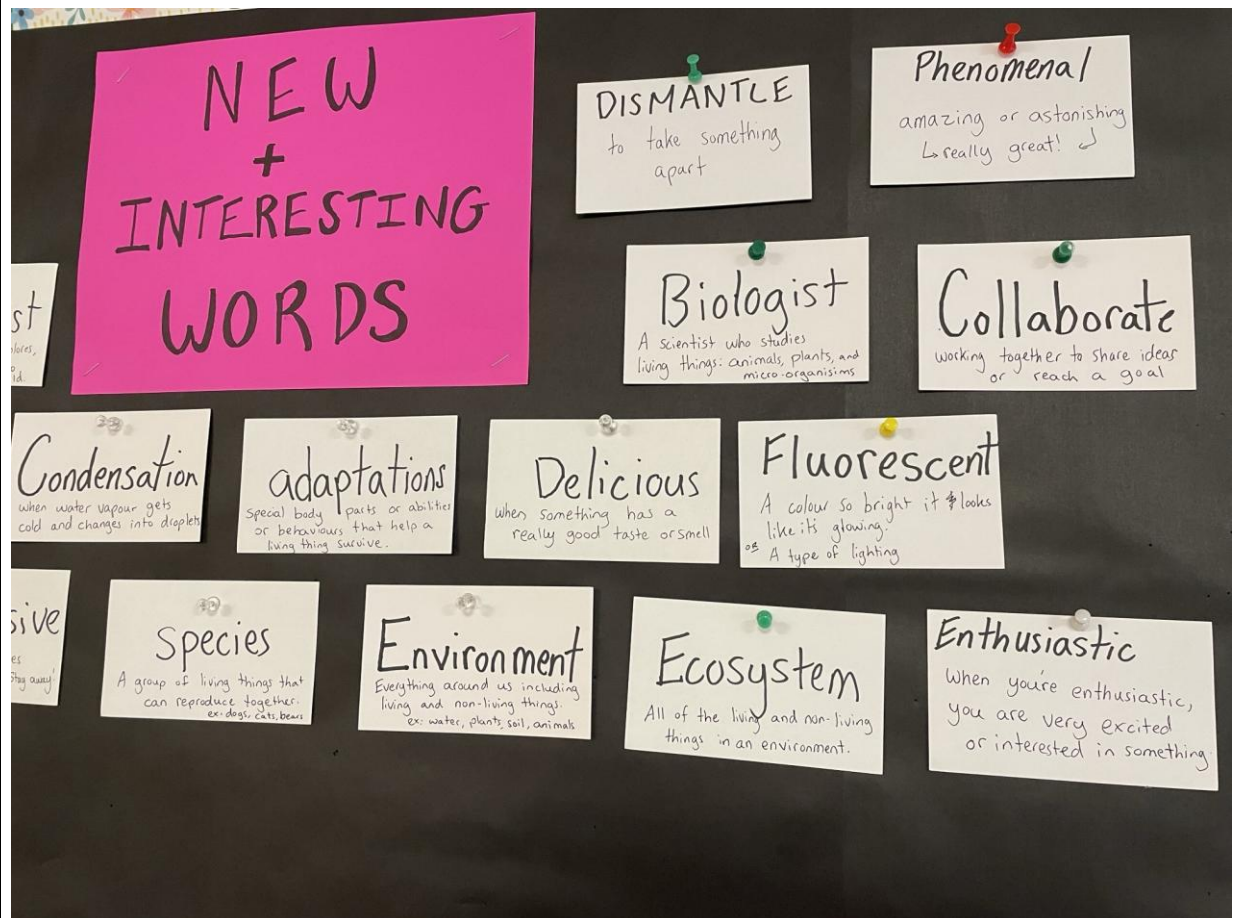 NEW
+
INTERESTING
WORDS
DISMANTLE
to take something
apart
Phenomenal
amazing or astonishing
↳ really great! ↲
Biologist
A scientist who studies
living things: animals, plants, and
micro-organisims
Collaborate
working together to share ideas
or reach a goal
st
lores,
id.
Condensation
when water vapour gets
cold and changes into droplets
adaptations
Special body parts or abilities
or behaviours that help a
living thing survive.
Delicious
when something has a
really good taste or smell
Fluorescent
A colour so bright it looks
like it's glowing.
or A type of lighting
sive
es
Stay away!
Species
A group of living things that
can reproduce together.
ex: dogs, cats, bears
Environment
Everything around us including
living and non-living things.
ex: water, plants, soil, animals
Ecosystem
All of the living and non-living
things in an environment.
Enthusiastic
When you're enthusiastic,
you are very excited
or interested in something.